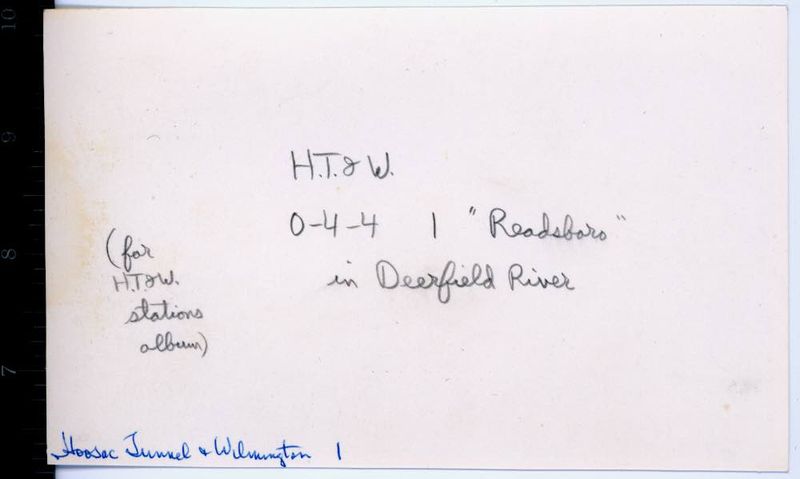 H.T.& W.
0-4-4 1 "Readsboro"
in Deerfield River
(for
H.T.&W.
stations
album)
Hoosac Tunnel & Wilmington 1
10
9
8
7